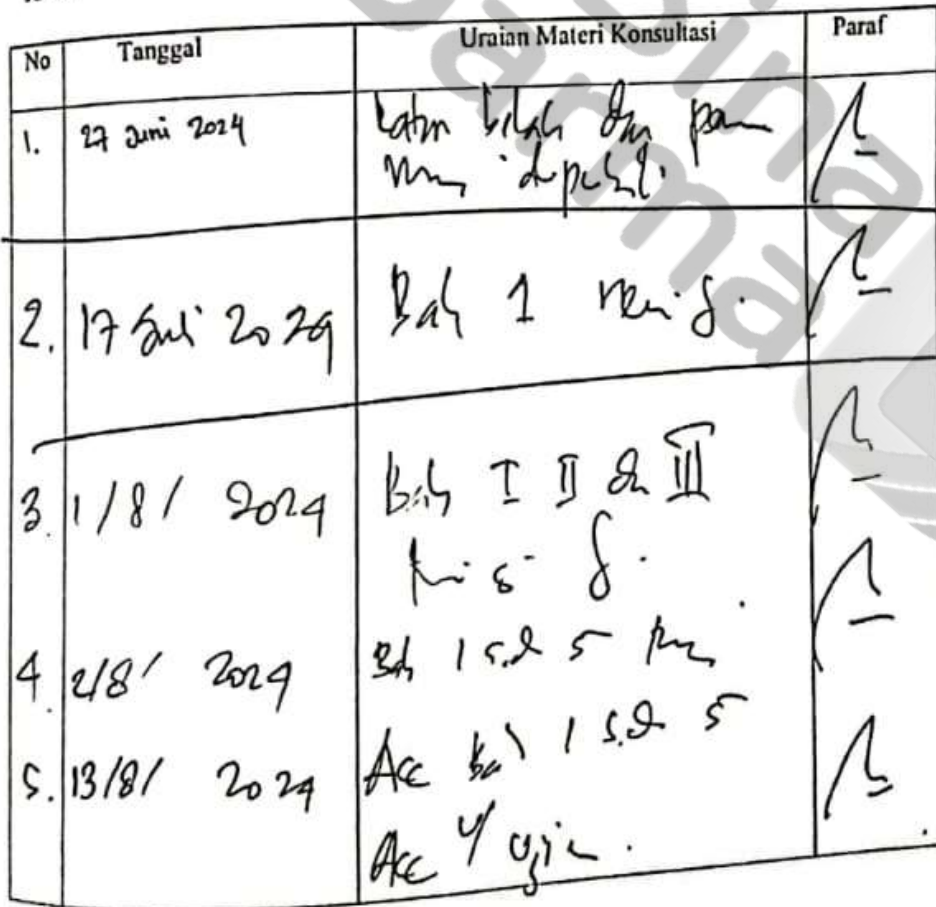 No Tanggal Uraian Materi Konsultasi Paraf
1. 27 Juni 2024 Latar dan
2. 17 Juli 2024 Bab 1 revisi
3. 1/8/ 2024 Bab I II dan III
revisi
4. 2/8/ 2024 Bab 1 s.d 5
5. 13/8/ 2024 Acc Bab 1 s.d 5
Acc U/ ujian.
bina
darma